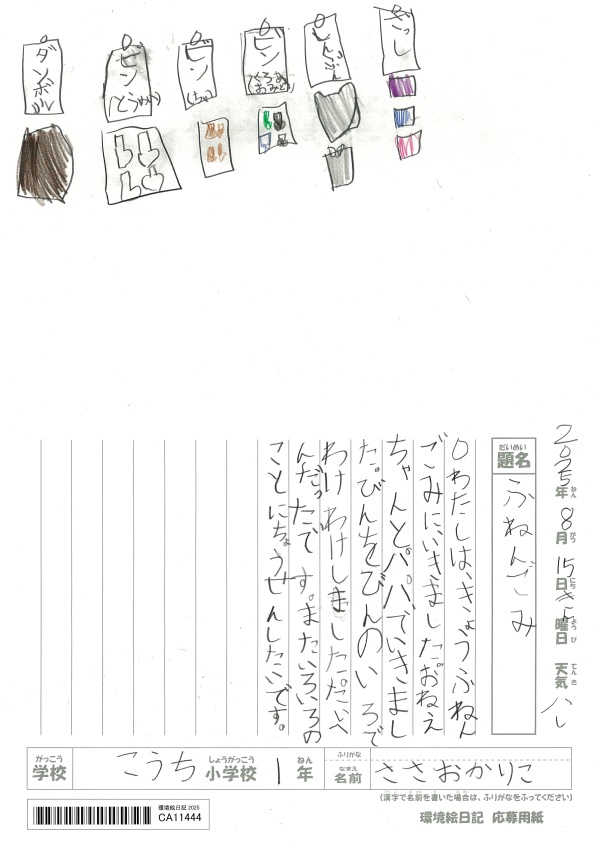 ダンボール
ビン
(とうめい)
ビン
(ちゃ)
ビン
(くろあおみどり)
しんぶん
ざっし
2025年ねん 8月がつ 15日にち きん曜日ようび 天気てんき ハレ
題名だいめい
ふねんごみ
○わたしは、きょうふねん
ごみにいきました。おねえ
ちゃんとパパでいきまし
た。びんをびんのいろで
わけわけしました。たいへ
んだったです。またいろいろの
ことにちょうせんしたいです。
学校がっこう こうち 小学校しょうがっこう 1 年ねん
ふりがな
名前なまえ ささおかりこ
(漢字で名前を書いた場合は、ふりがなをふってください)
環境絵日記 2025
CA11444
環境絵日記 応募用紙